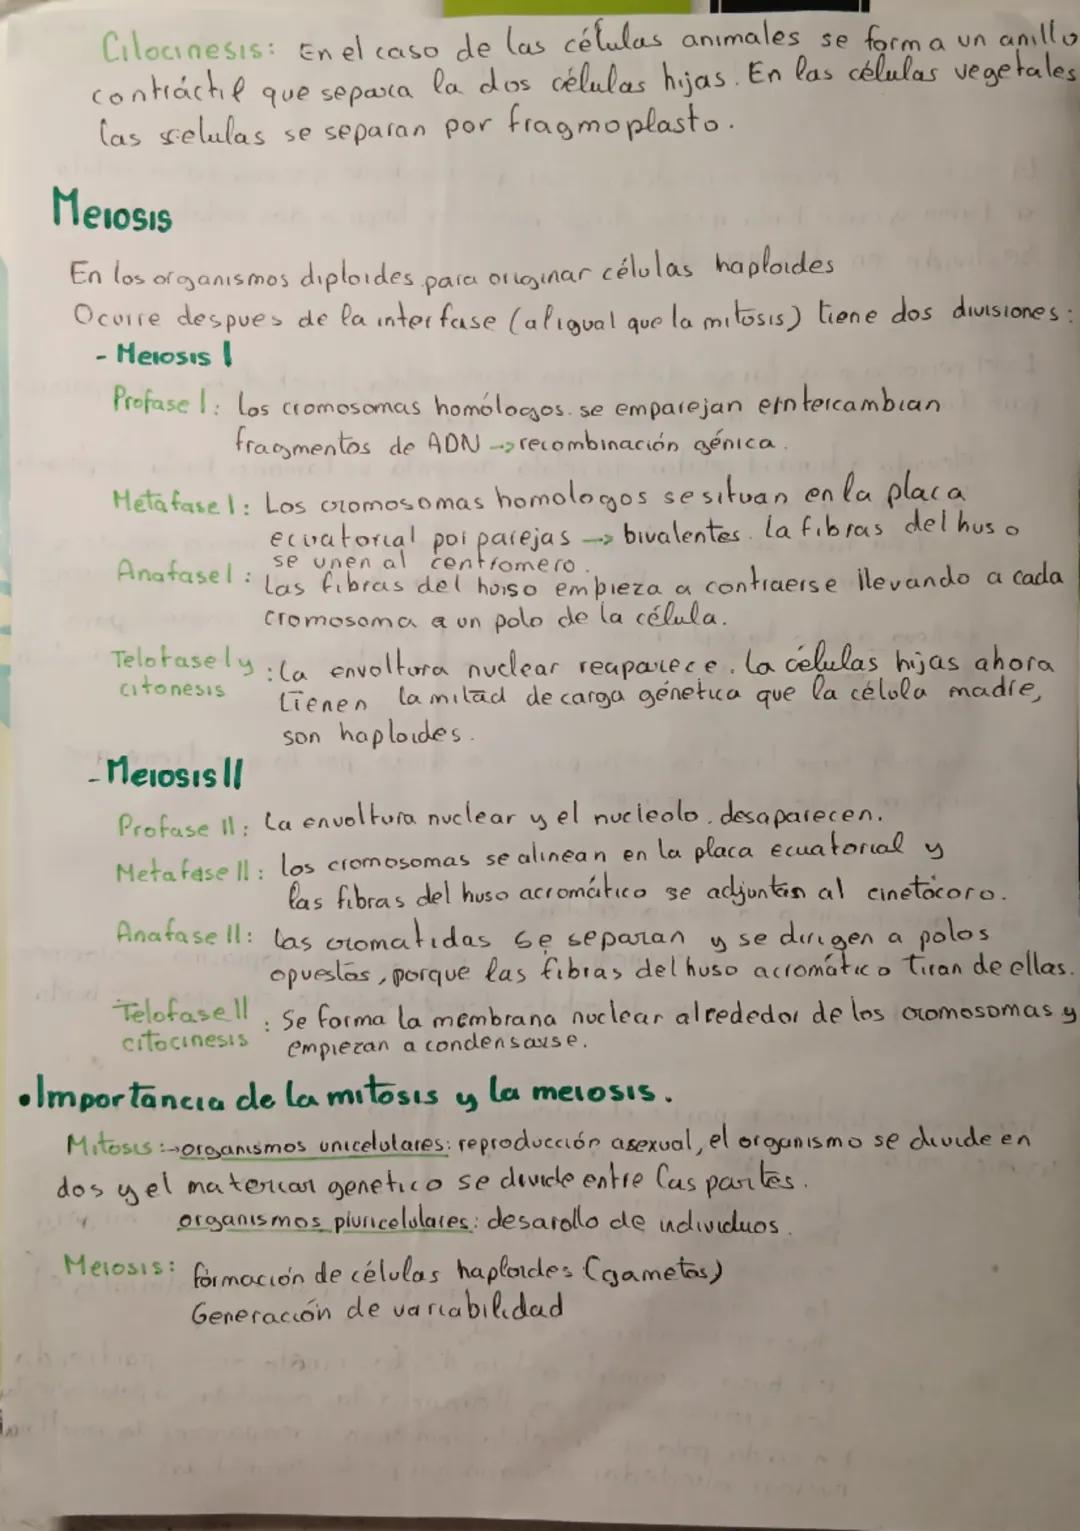 Citocinesis: En el caso de las células animales se forma un anillo
contráctil que separa la dos células hijas. En las células vegetales
las celulas se separan por fragmoplasto.
Meiosis
En los organismos diploides para originar células haploides
Ocurre despues de la interfase (al igual que la mitosis) tiene dos divisiones:
- Meiosis I
Profase I: los cromosomas homólogos se emparejan e intercambian
fragmentos de ADN -> recombinación génica.
Metafase I: Los cromosomas homologos se situan en la placa
ecuatorial por parejas -> bivalentes. la fibras del huso
se unen al centromero.
Anafase I: las fibras del huso empieza a contraerse llevando a cada
cromosoma a un polo de la célula.
Telofase I y citonesis: la envoltura nuclear reaparece. la células hijas ahora
tienen la mitad de carga génetica que la célula madre,
son haploides.
- Meiosis II
Profase II: La envoltura nuclear y el nucleolo. desaparecen.
Metafase II: los cromosomas se alinean en la placa ecuatorial y
las fibras del huso acromático se adjuntan al cinetócoro.
Anafase II: las cromatidas se separan y se dirigen a polos
opuestos, porque las fibras del huso acromático tiran de ellas.
Telofase II citocinesis: Se forma la membrana nuclear alrededor de los cromosomas y
empiezan a condensarse.
• Importancia de la mitosis y la meiosis.
Mitosis: -> organismos unicelulares: reproducción asexual, el organismo se divide en
dos y el materiar genetico se divide entre las partes.
organismos pluricelulares: desarollo de individuos.
Meiosis: formación de células haploides (gametos)
Generación de variabilidad